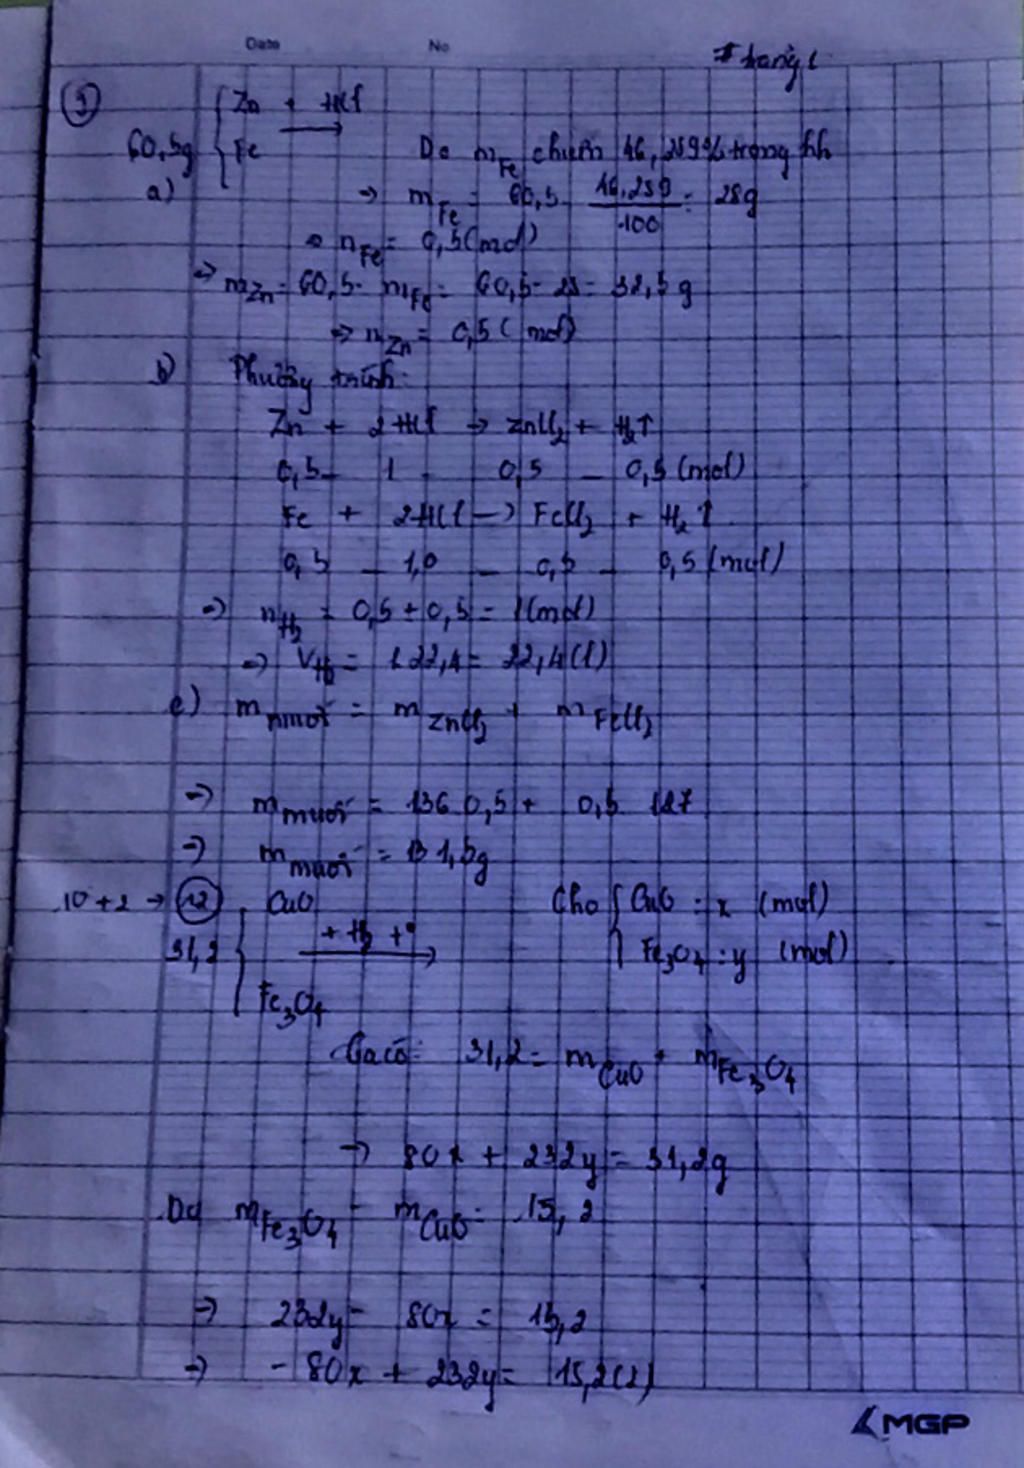 Date No
# trang 1
9 Zn + HCl
60,5g Fe → Do mFe chiếm 46,289% trong hh
a) → mFe = 60,5 . 46,289/100 = 28g
→ nFe = 0,5 (mol)
→ mZn = 60,5 - mFe = 60,5 - 28 = 32,5 g
→ nZn = 0,5 (mol)
b) Phương trình:
Zn + 2HCl → ZnCl2 + H2↑
0,5 - 1 - 0,5 - 0,5 (mol)
Fe + 2HCl → FeCl2 + H2↑
0,5 - 1,0 - 0,5 - 0,5 (mol)
→ nH2 = 0,5 + 0,5 = 1 (mol)
→ VH2 = 1.22,4 = 22,4 (l)
c) m muối = m ZnCl2 + m FeCl2
→ m muối = 136.0,5 + 0,5.127
→ m muối = 131,5g
10+2 → 12 CuO Cho CuO : x (mol)
31,2 + H2 t° → Fe3O4 : y (mol)
Fe3O4
Ta có: 31,2 = mCuO + mFe3O4
→ 80x + 232y = 31,2g
Do mFe3O4 - mCuO = 15,2
→ 232y - 80x = 15,2
→ - 80x + 232y = 15,2 (2)
MGP